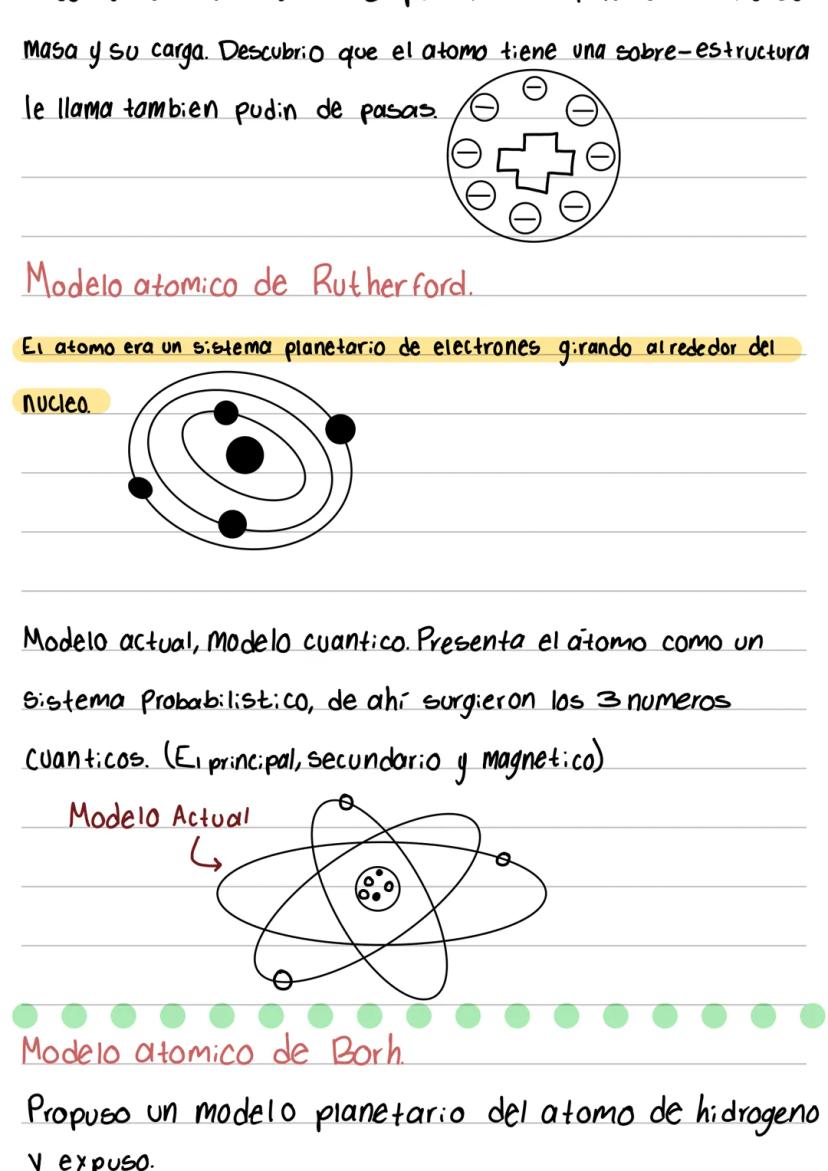 masa y su carga. Descubrio que el atomo tiene una sobre-estructura
le llama tambien pudin de pasas.
Modelo atomico de Rutherford.
El atomo era un sistema planetario de electrones girando alrededor del
nucleo.
Modelo actual, modelo cuantico. Presenta el átomo como un
sistema Probabilistico, de ahí surgieron los 3 numeros
cuanticos. (El principal, secundario y magnetico)
Modelo Actual
Modelo atomico de Borh.
Propuso un modelo planetario del atomo de hidrogeno
y expuso.